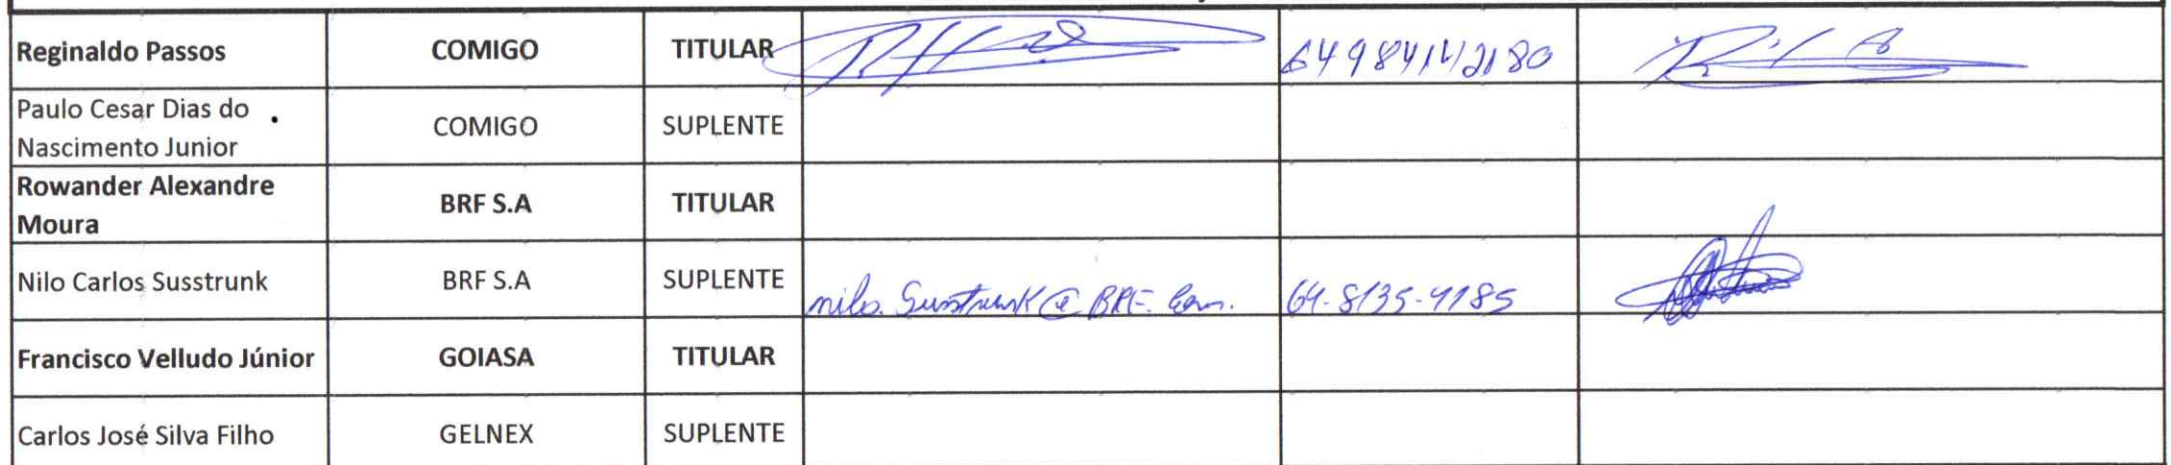 Reginaldo Passos COMIGO TITULAR
Paulo Cesar Dias do
Nascimento Junior COMIGO SUPLENTE
Rowander Alexandre
Moura BRF S.A TITULAR
Nilo Carlos Susstrunk BRF S.A SUPLENTE nilo.Susstrunk@BRF.com. 64-8135-4185
Francisco Velludo Júnior GOIASA TITULAR
Carlos José Silva Filho GELNEX SUPLENTE